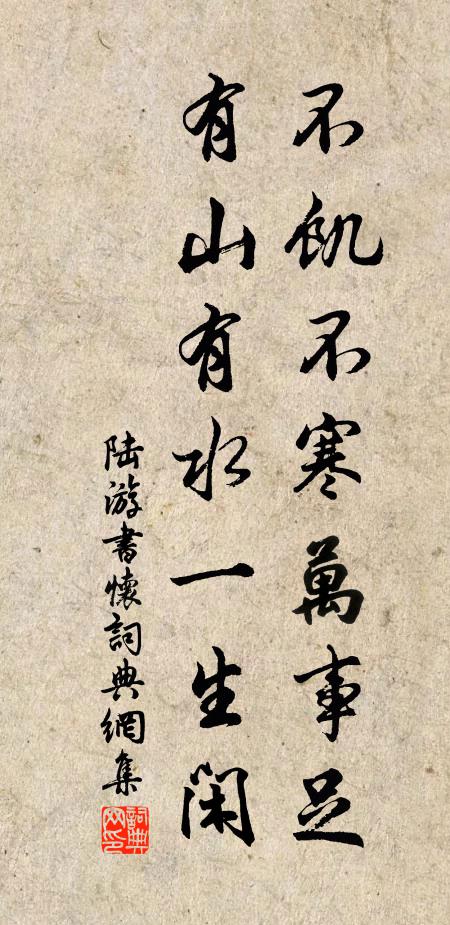 不飢不寒萬事足
有山有水一生閑
陸游書懷詞典網集
詞典网印